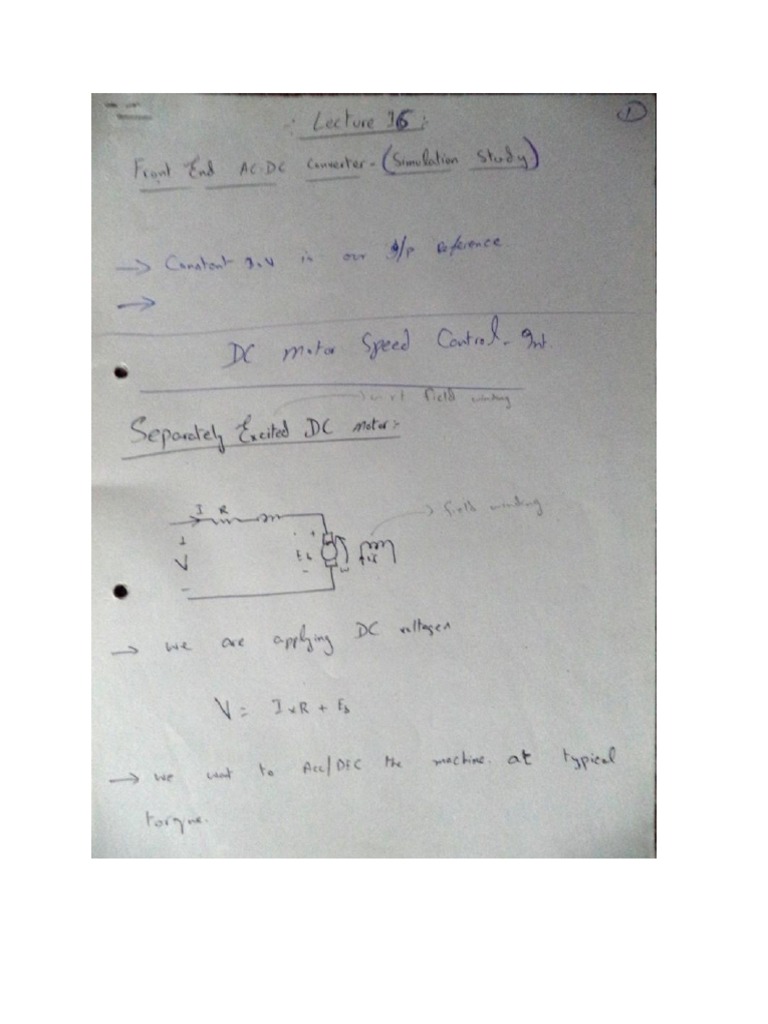 Lecture 36 :-
1
Front End AC-DC Converter - (Simulation Study)
→ Constant is our I/p Reference
→
DC motor Speed Control - Int.
→ w.r.t field winding
Separately Excited DC motor :-
I R
→ field winding
+
V
-
+
Eb
-
→ we are applying DC voltages
V = I x R + Eb
→ we want to Acc/DEC the machine. at typical
torque.